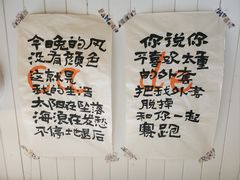 今晚的风
没有颜色
这就是
我的生活
太阳在坠落
海浪在发愁
不停地着后
你说你
不喜欢太重
的外套
把我外套
脱掉
和你一起
赛跑